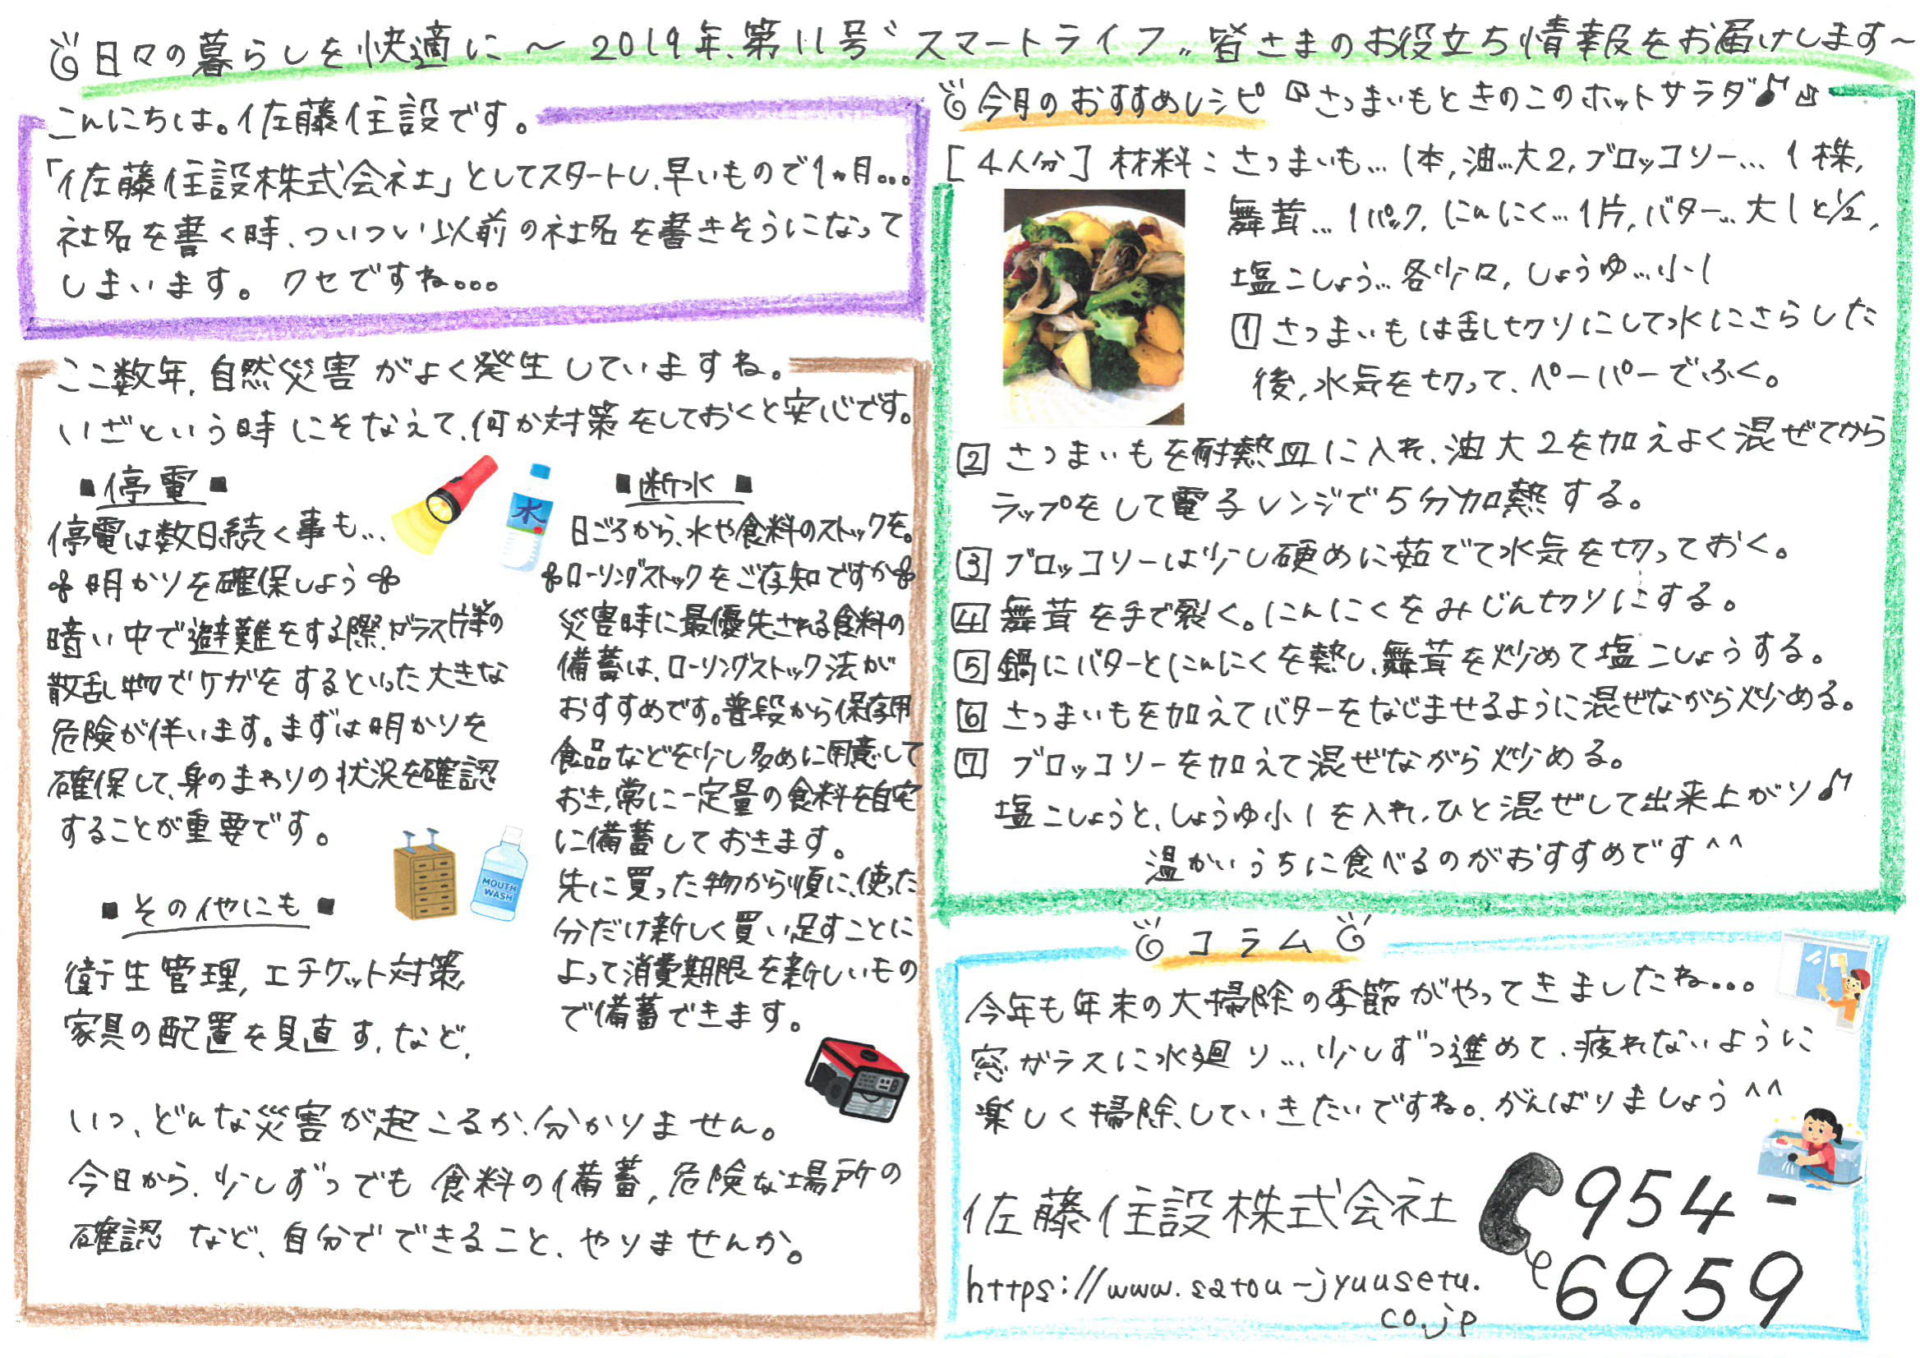 日々の暮らしを快適に〜2019年.第11号“スマートライフ„皆さまのお役立ち情報をお届けします〜
こんにちは。佐藤住設です。
「佐藤住設株式会社」としてスタートし、早いもので1ヵ月...
社名を書く時、ついつい以前の社名を書きそうになって
しまいます。クセですね...
ここ数年、自然災害がよく発生していますね。
いざという時にそなえて、何か対策をしておくと安心です。
■停電■
停電は数日続く事も...
明かりを確保しよう
暗い中で避難をする際、ガラス片等の
散乱物でケガをするといった大きな
危険が伴います。まずは明かりを
確保して、身のまわりの状況を確認
することが重要です。
水
■断水■
日ごろから、水や食料のストックを。
ローリングストックをご存知ですか
災害時に最優先される食料の
備蓄は、ローリングストック法が
おすすめです。普段から保存用
食品などを少し多めに用意して
おき、常に一定量の食料を自宅
に備蓄しておきます。
先に買った物から順に、使った
分だけ新しく買い足すことに
よって消費期限を新しいもの
で備蓄できます。
MOUTH
WASH
■その他にも■
衛生管理,エチケット対策,
家具の配置を見直す、など、
いつ、どんな災害が起こるか、分かりません。
今日から、少しずつでも食料の備蓄,危険な場所の
確認など、自分でできること、やりませんか。
今月のおすすめレシピ『さつまいもときのこのホットサラダ♪』
[4人分]材料:さつまいも...1本,油...大2,ブロッコリー...1株,
舞茸...1パック,にんにく...1片,バター...大1と1/2,
塩こしょう...各少々,しょうゆ...小1
1 さつまいもは乱切りにして水にさらした
後,水気を切って、ペーパーでふく。
2 さつまいもを耐熱皿に入れ、油大2を加えよく混ぜてから
ラップをして電子レンジで5分加熱する。
3 ブロッコリーは少し硬めに茹でて水気を切っておく。
4 舞茸を手で裂く。にんにくをみじん切りにする。
5 鍋にバターとにんにくを熱し、舞茸を炒めて塩こしょうする。
6 さつまいもを加えてバターをなじませるように混ぜながら炒める。
7 ブロッコリーを加えて混ぜながら炒める。
塩こしょうと、しょうゆ小1を入れ、ひと混ぜして出来上がり♪
温かいうちに食べるのがおすすめです^^
コラム
今年も年末の大掃除の季節がやってきましたね...
窓ガラスに水廻り...少しずつ進めて、疲れないように
楽しく掃除、していきたいですね。がんばりましょう^^
佐藤住設株式会社
954-
6959
https://www.satou-jyuusetu.
co.jp